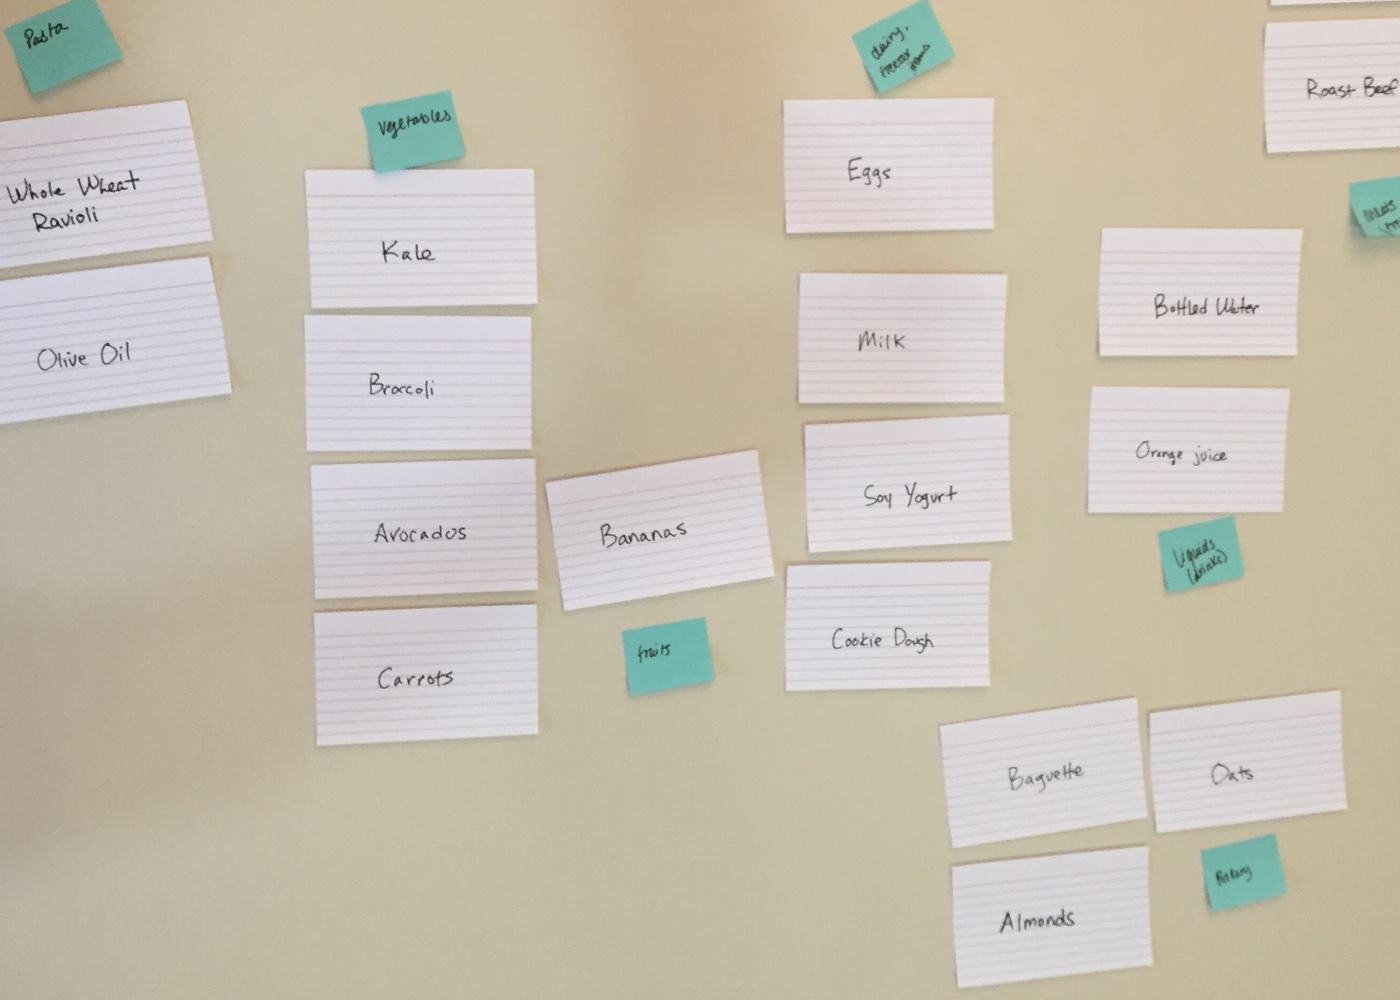 Pasta
Whole Wheat
Ravioli
Olive Oil
Vegetables
Kale
Broccoli
Avocados
Carrots
Bananas
fruits
dairy,
freezer
items
Eggs
Milk
Soy Yogurt
Cookie Dough
Roast Beef
Bottled Water
Orange juice
Liquids
(drinks)
Baguette
Oats
Almonds
Bakery